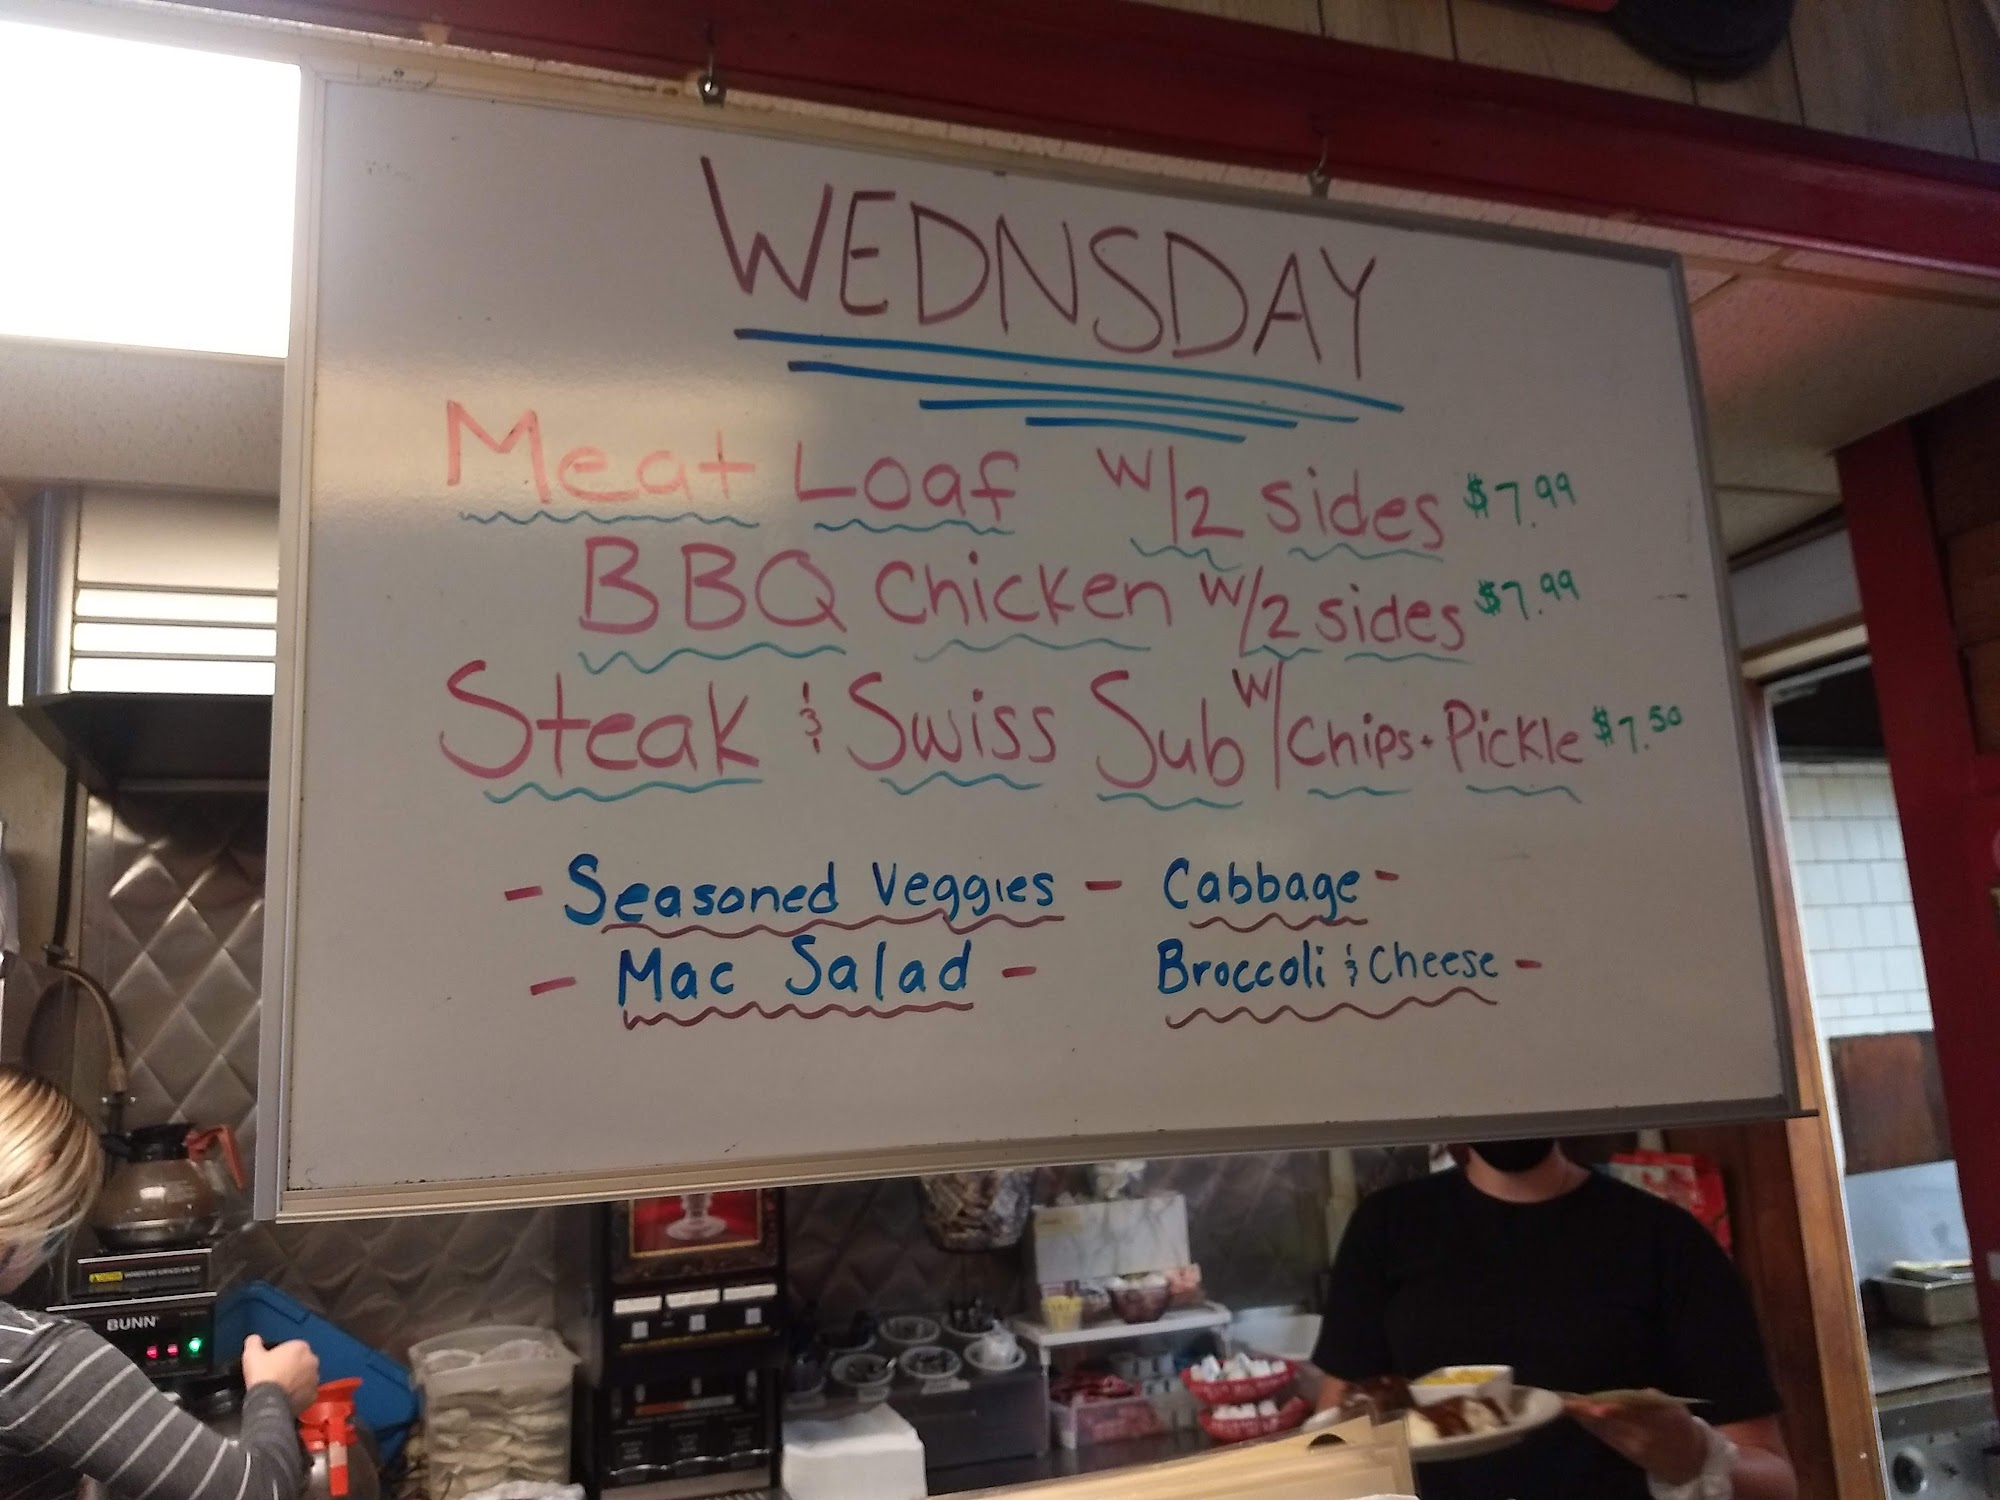 WEDNSDAY
Meat Loaf w/2 sides $7.99
BBQ Chicken w/2 sides $7.99
Steak & Swiss Sub w/chips + Pickle $7.50
- Seasoned Veggies - Cabbage -
- Mac Salad - Broccoli & Cheese -
BUNN